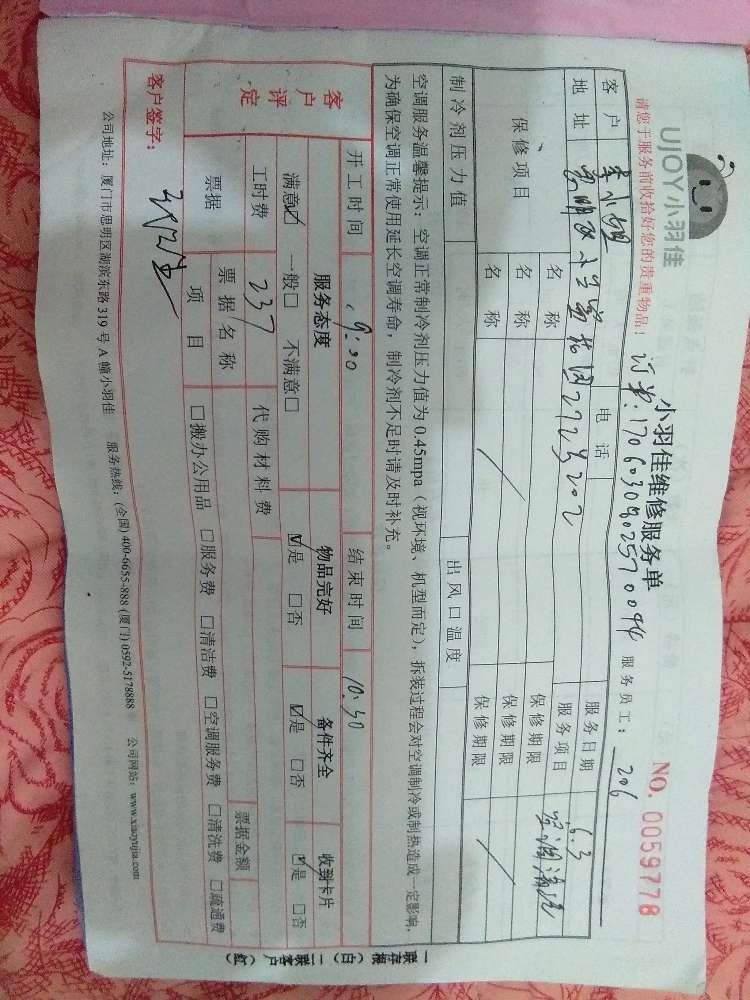 UJOY小羽佳
小羽佳维修服务单
NO. 0059778
请您于服务前收拾好您的贵重物品！
订单:1706030802570094
服务员工： 206
客户 李小姐 电话 服务日期 6.3
地址 272号202 服务项目 空调清洗
保修项目 名称 保修期限
名称 / 保修期限 /
名称 保修期限
制冷剂压力值 出风口温度
空调服务温馨提示：空调正常制冷剂压力值为0.45mpa（视环境、机型而定），拆装过程会对空调制冷或制热造成一定影响，
为确保空调正常使用延长空调寿命，制冷剂不足时请及时补充。
开工时间 9:30 结束时间 10:30
客户评定 服务态度 物品完好 备件齐全 收到卡片
满意☑ 一般□ 不满意□ ☑是 □否 ☑是 □否 ☑是 □否
工时费 237 代购材料费 票据金额
票据 票据名称
项目 □搬办公用品 □服务费 □清洁费 □空调服务费 □清洗费 □疏通费
客户签字：
公司地址：厦门市思明区湖滨东路319号A幢小羽佳 服务热线：(全国) 400-6655-888 (厦门) 0592-5178888 公司网站：www.xiaoyujia.com
一联存根（白）二联客户（红）